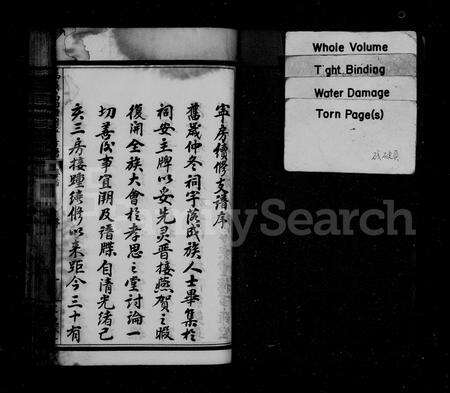 寧房續修支譜序
舊歲仲冬祠宇落成族人士畢集於
祠安主牌以妥先灵晋接燕贺之暇
復開全族大會於孝思之堂討論一
切善後事宜溯及譜牒自清光緒己
亥三房接踵續修以来距今三十有
Whole Volume
Tight Binding
Water Damage
Torn Page(s)
残破頁
FamilySearch